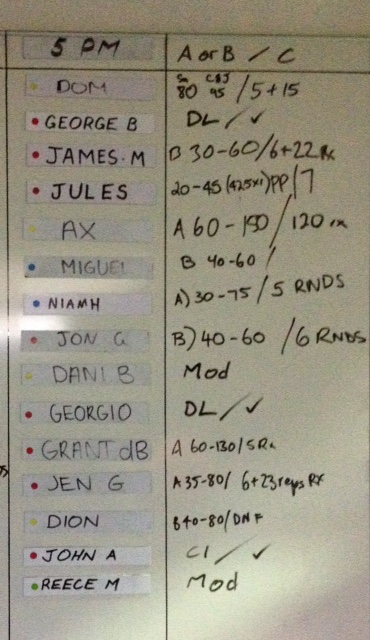 5 PM A or B / C
DOM 80 95 / 5 + 15
GEORGE B DL / ✓
JAMES. M B 30-60/6+22 Rx
JULES 20-45 (42.5x1) PP / 7
AX A 60 - 150 / 120 rx
MIGUEL B 40-60 /
NIAMH A) 30-75 / 5 RNDS
JON G B) 40-60 / 6 RNDS
DANI B Mod
GEORGIO DL / ✓
GRANT dB A 60-130/5 Rx
JEN G A 35-80/ 6+23 reps RX
DION B 40-80/DNF
JOHN A / ✓
REECE M Mod